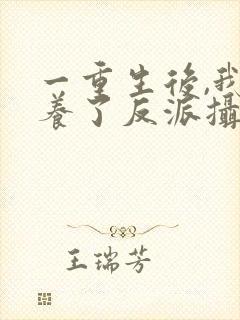 一重生後,我
養了反派攝
王瑞芳